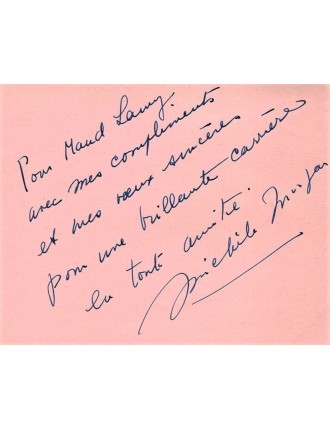 Pour Maud Lamy
avec mes compliments
et mes vœux sincères
pour une brillante carrière
en toute amitié.
Michèle Morgan